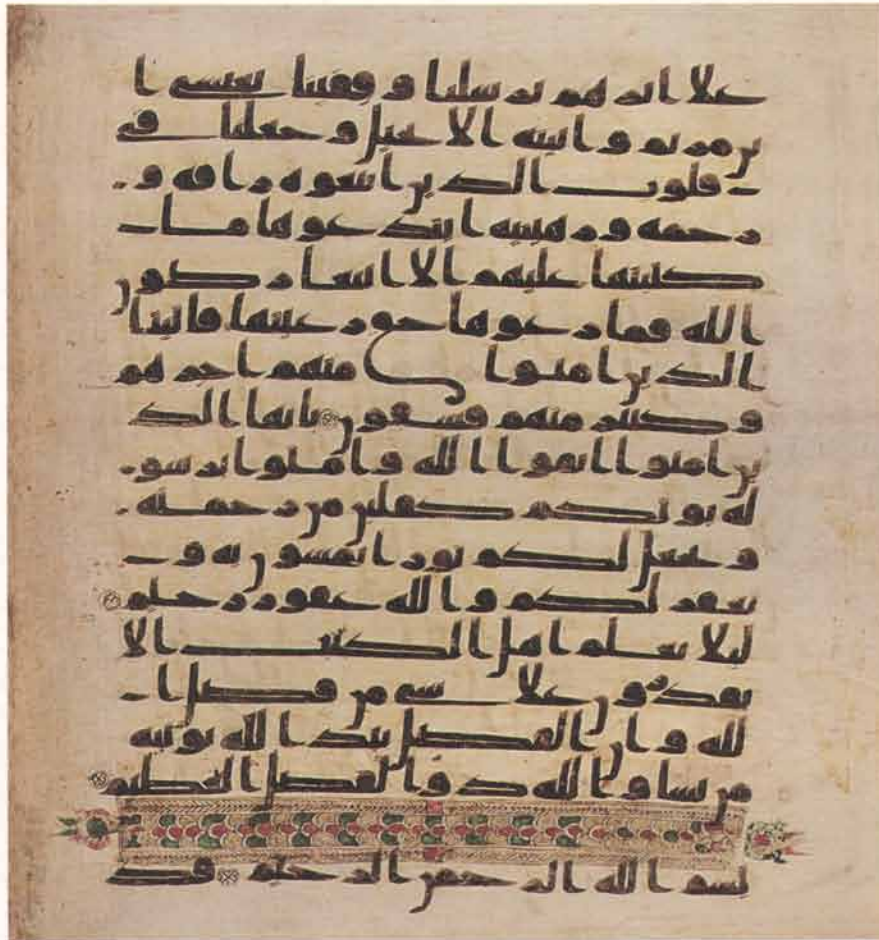 علا اثرهم برسلنا و قفينا بعيسى ا
بن مريم و اتينه الانجيل و جعلنا في
قلوب الذين اتبعوه رافة و
رحمة ورهبنية ابتدعوها ما
كتبنها عليهم الا ابتغا رضون
الله فما رعوها حق رعيتها فاتينا
الذين امنوا منهم اجرهم
و كثير منهم فسقون يايها الذ
ين امنوا اتقوا الله و امنوا برسو
له يوتكم كفلين من رحمته
و يجعل لكم نورا تمشون به و
يغفر لكم و الله غفور رحيم
ليلا يعلم اهل الكتب الا
يقدرون علا شي من فضل ا
لله و ان الفضل بيد الله يوتيه
من يشا و الله ذو الفضل العظيم
بسم الله الرحمن الرحيم قد